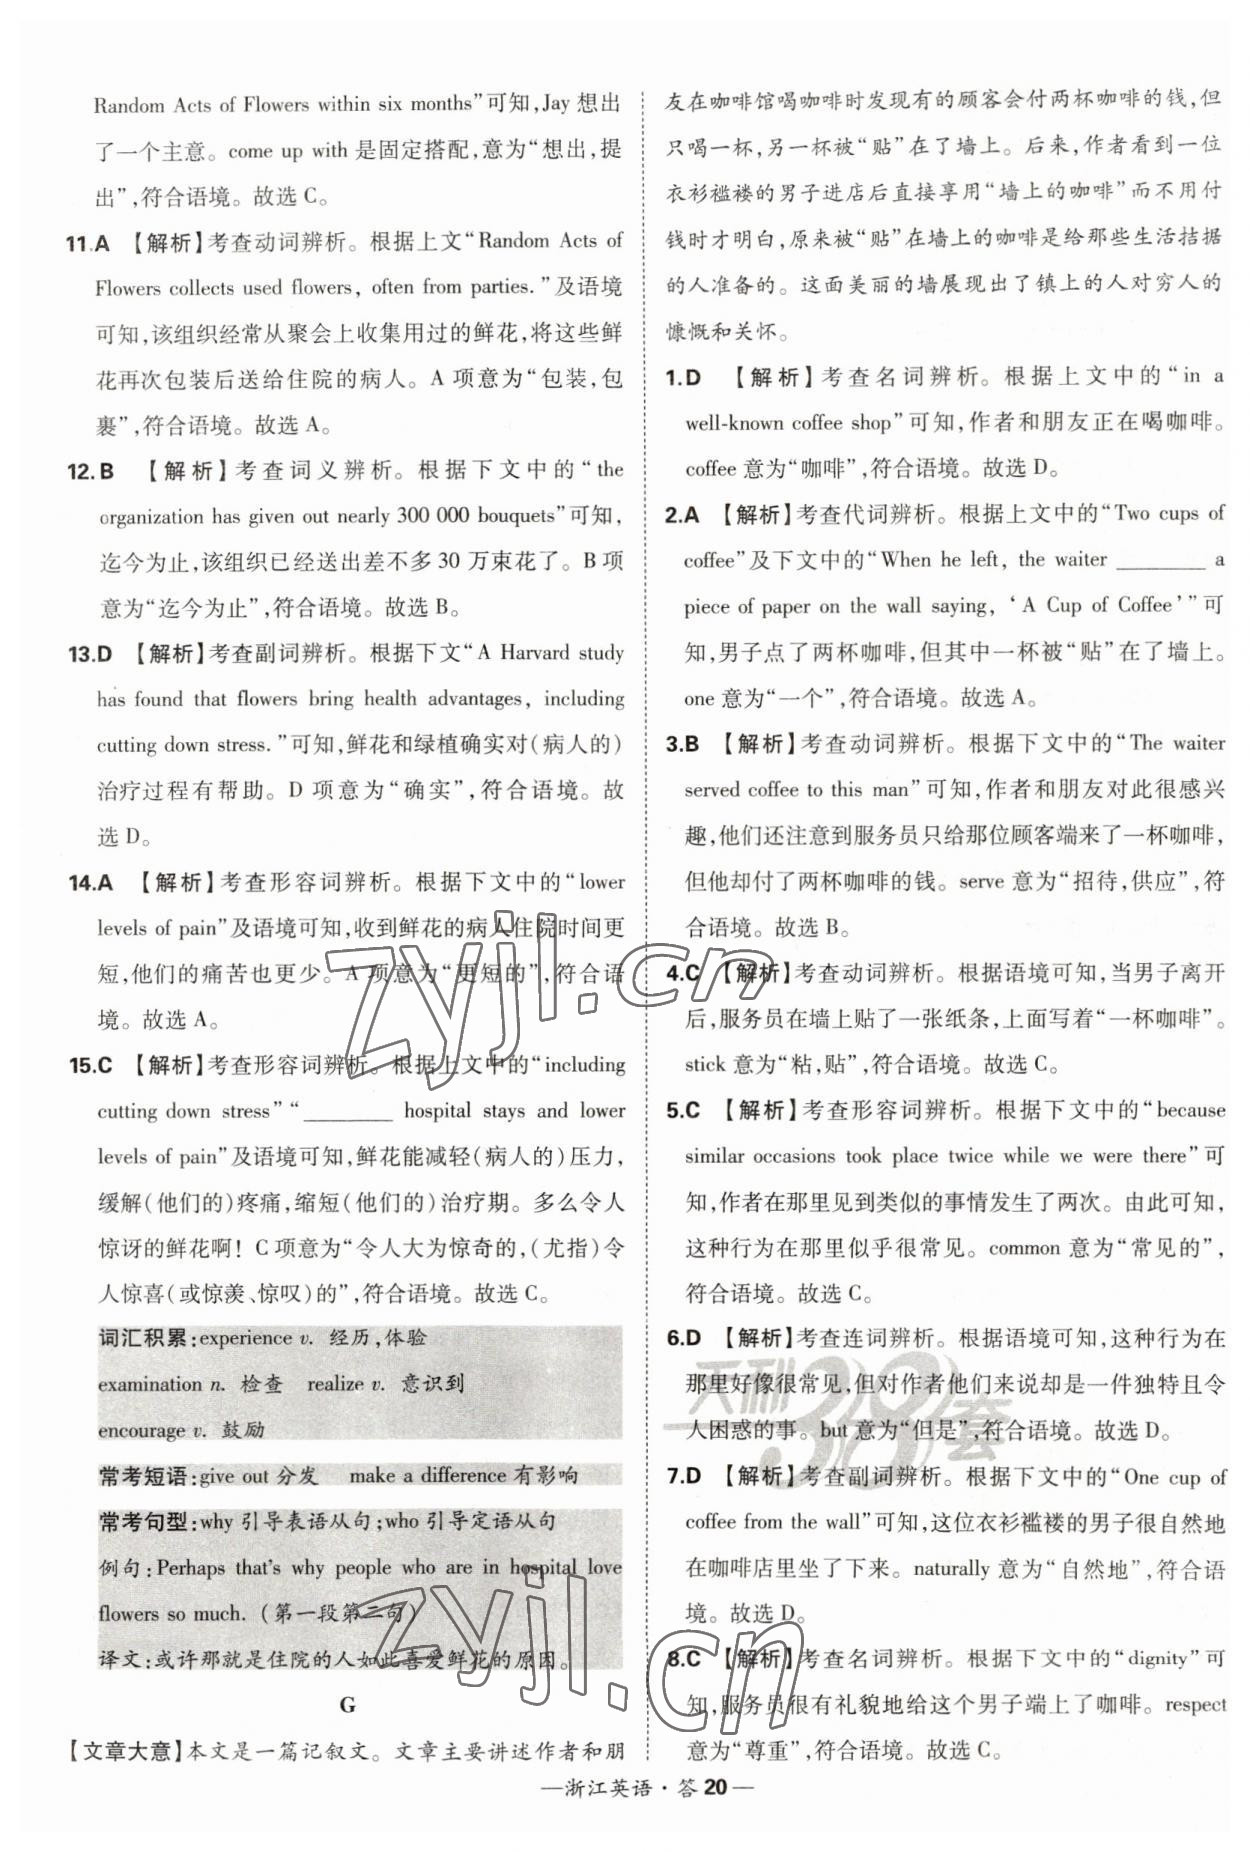 Random Acts of Flowers within six months”可知,Jay 想出
了一个主意。come up with 是固定搭配,意为“想出,提
出”,符合语境。故选 C。
11.A 【解析】考查动词辨析。根据上文“Random Acts of
Flowers collects used flowers, often from parties.”及语境
可知,该组织经常从聚会上收集用过的鲜花,将这些鲜
花再次包装后送给住院的病人。A 项意为“包装,包
裹”,符合语境。故选 A。
12.B 【解析】考查词义辨析。根据下文中的“the
organization has given out nearly 300 000 bouquets”可知,
迄今为止,该组织已经送出差不多 30 万束花了。B 项
意为“迄今为止”,符合语境。故选 B。
13.D 【解析】考查副词辨析。根据下文“A Harvard study
has found that flowers bring health advantages, including
cutting down stress.”可知,鲜花和绿植确实对(病人的)
治疗过程有帮助。D 项意为“确实”,符合语境。故
选 D。
14.A 【解析】考查形容词辨析。根据下文中的“lower
levels of pain”及语境可知,收到鲜花的病人住院时间更
短,他们的痛苦也更少。A 项意为“更短的”,符合语
境。故选 A。
15.C 【解析】考查形容词辨析。根据上文中的“including
cutting down stress”“________ hospital stays and lower
levels of pain”及语境可知,鲜花能减轻(病人的)压力,
缓解(他们的)疼痛,缩短(他们的)治疗期。多么令人
惊讶的鲜花啊! C 项意为“令人大为惊奇的,(尤指)令
人惊喜(或惊羡、惊叹)的”,符合语境。故选 C。
词汇积累:experience v. 经历,体验
examination n. 检查 realize v. 意识到
encourage v. 鼓励
常考短语:give out 分发 make a difference 有影响
常考句型:why 引导表语从句;who 引导定语从句
例句:Perhaps that's why people who are in hospital love
flowers so much.(第一段第二句)
译文:或许那就是住院的人如此喜爱鲜花的原因。
G
【文章大意】本文是一篇记叙文。文章主要讲述作者和朋
友在咖啡馆喝咖啡时发现有的顾客会付两杯咖啡的钱,但
只喝一杯,另一杯被“贴”在了墙上。后来,作者看到一位
衣衫褴褛的男子进店后直接享用“墙上的咖啡”而不用付
钱时才明白,原来被“贴”在墙上的咖啡是给那些生活拮据
的人准备的。这面美丽的墙展现出了镇上的人对穷人的
慷慨和关怀。
1.D 【解析】考查名词辨析。根据上文中的“in a
well-known coffee shop”可知,作者和朋友正在喝咖啡。
coffee 意为“咖啡”,符合语境。故选 D。
2.A 【解析】考查代词辨析。根据上文中的“Two cups of
coffee”及下文中的“When he left, the waiter ________ a
piece of paper on the wall saying, ‘A Cup of Coffee’”可
知,男子点了两杯咖啡,但其中一杯被“贴”在了墙上。
one 意为“一个”,符合语境。故选 A。
3.B 【解析】考查动词辨析。根据下文中的“The waiter
served coffee to this man”可知,作者和朋友对此很感兴
趣,他们还注意到服务员只给那位顾客端来了一杯咖啡,
但他却付了两杯咖啡的钱。serve 意为“招待,供应”,符
合语境。故选 B。
4.C 【解析】考查动词辨析。根据语境可知,当男子离开
后,服务员在墙上贴了一张纸条,上面写着“一杯咖啡”。
stick 意为“粘,贴”,符合语境。故选 C。
5.C 【解析】考查形容词辨析。根据下文中的“because
similar occasions took place twice while we were there”可
知,作者在那里见到类似的事情发生了两次。由此可知,
这种行为在那里似乎很常见。common 意为“常见的”,
符合语境。故选 C。
6.D 【解析】考查连词辨析。根据语境可知,这种行为在
那里好像很常见,但对作者他们来说却是一件独特且令
人困惑的事。but 意为“但是”,符合语境。故选 D。
7.D 【解析】考查副词辨析。根据下文中的“One cup of
coffee from the wall”可知,这位衣衫褴褛的男子很自然地
在咖啡店里坐了下来。naturally 意为“自然地”,符合语
境。故选 D。
8.C 【解析】考查名词辨析。根据下文中的“dignity”可
知,服务员很有礼貌地给这个男子端上了咖啡。respect
意为“尊重”,符合语境。故选 C。
—浙江英语·答 20—
zyjl.cn
天利38套
zyjl.cn